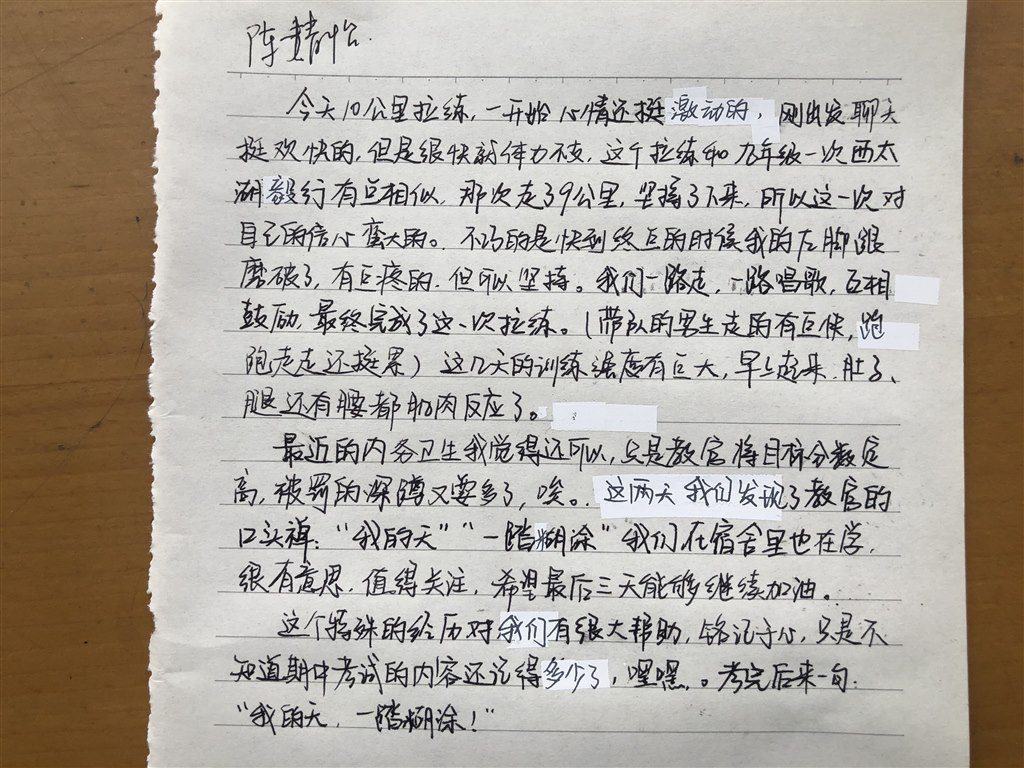 陈慧怡.
今天10公里拉练,一开始心情还挺激动的,刚出发聊天
挺欢快的,但是很快就体力不支,这个拉练和九年级一次西太
湖毅行有点相似,那次走了9公里,坚持了下来,所以这一次对
自己的信心蛮大的。不巧的是快到终点的时候我的左脚跟
磨破了,有点疼的,但可以坚持。我们一路走,一路唱歌,互相
鼓励,最终完成了这一次拉练。(带队的男生走的有点快,跑
跑走走还挺累)这几天的训练强度有点大,早上起来,肚子、
腿还有腰都肌肉反应了。
最近的内务卫生我觉得还可以,只是教官将目标分数定
高,被罚的深蹲又要多了,唉。这两天我们发现了教官的
口头禅:“我的天”“一踏糊涂”我们在宿舍里也在学,
很有意思,值得关注,希望最后三天能够继续加油。
这个特殊的经历对我们有很大帮助,铭记于心,只是不
知道期中考试的内容还记得多少了,嘿嘿。考完后来一句:
“我的天,一踏糊涂!”